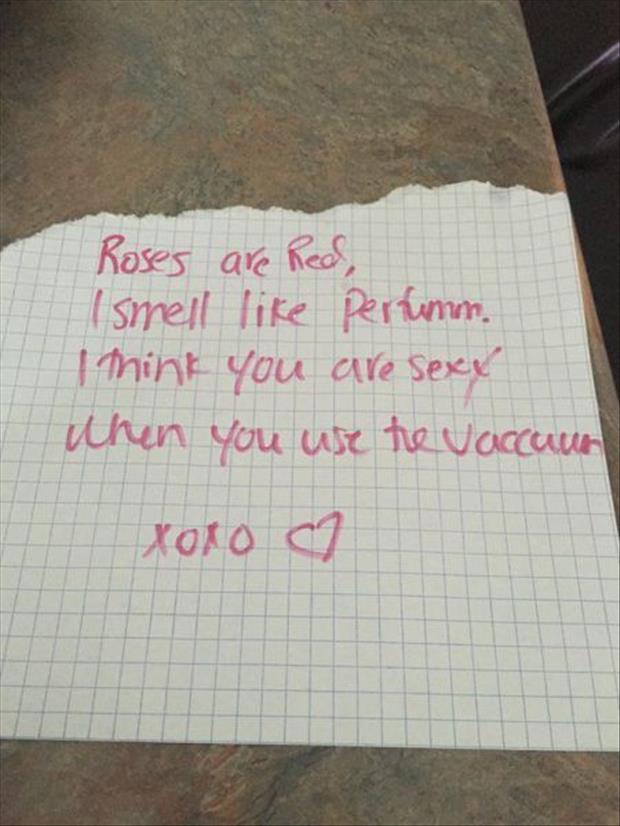 Roses are Red,
I smell like perfumm.
I think you are sexy
when you use the vaccuum
xoxo ♡